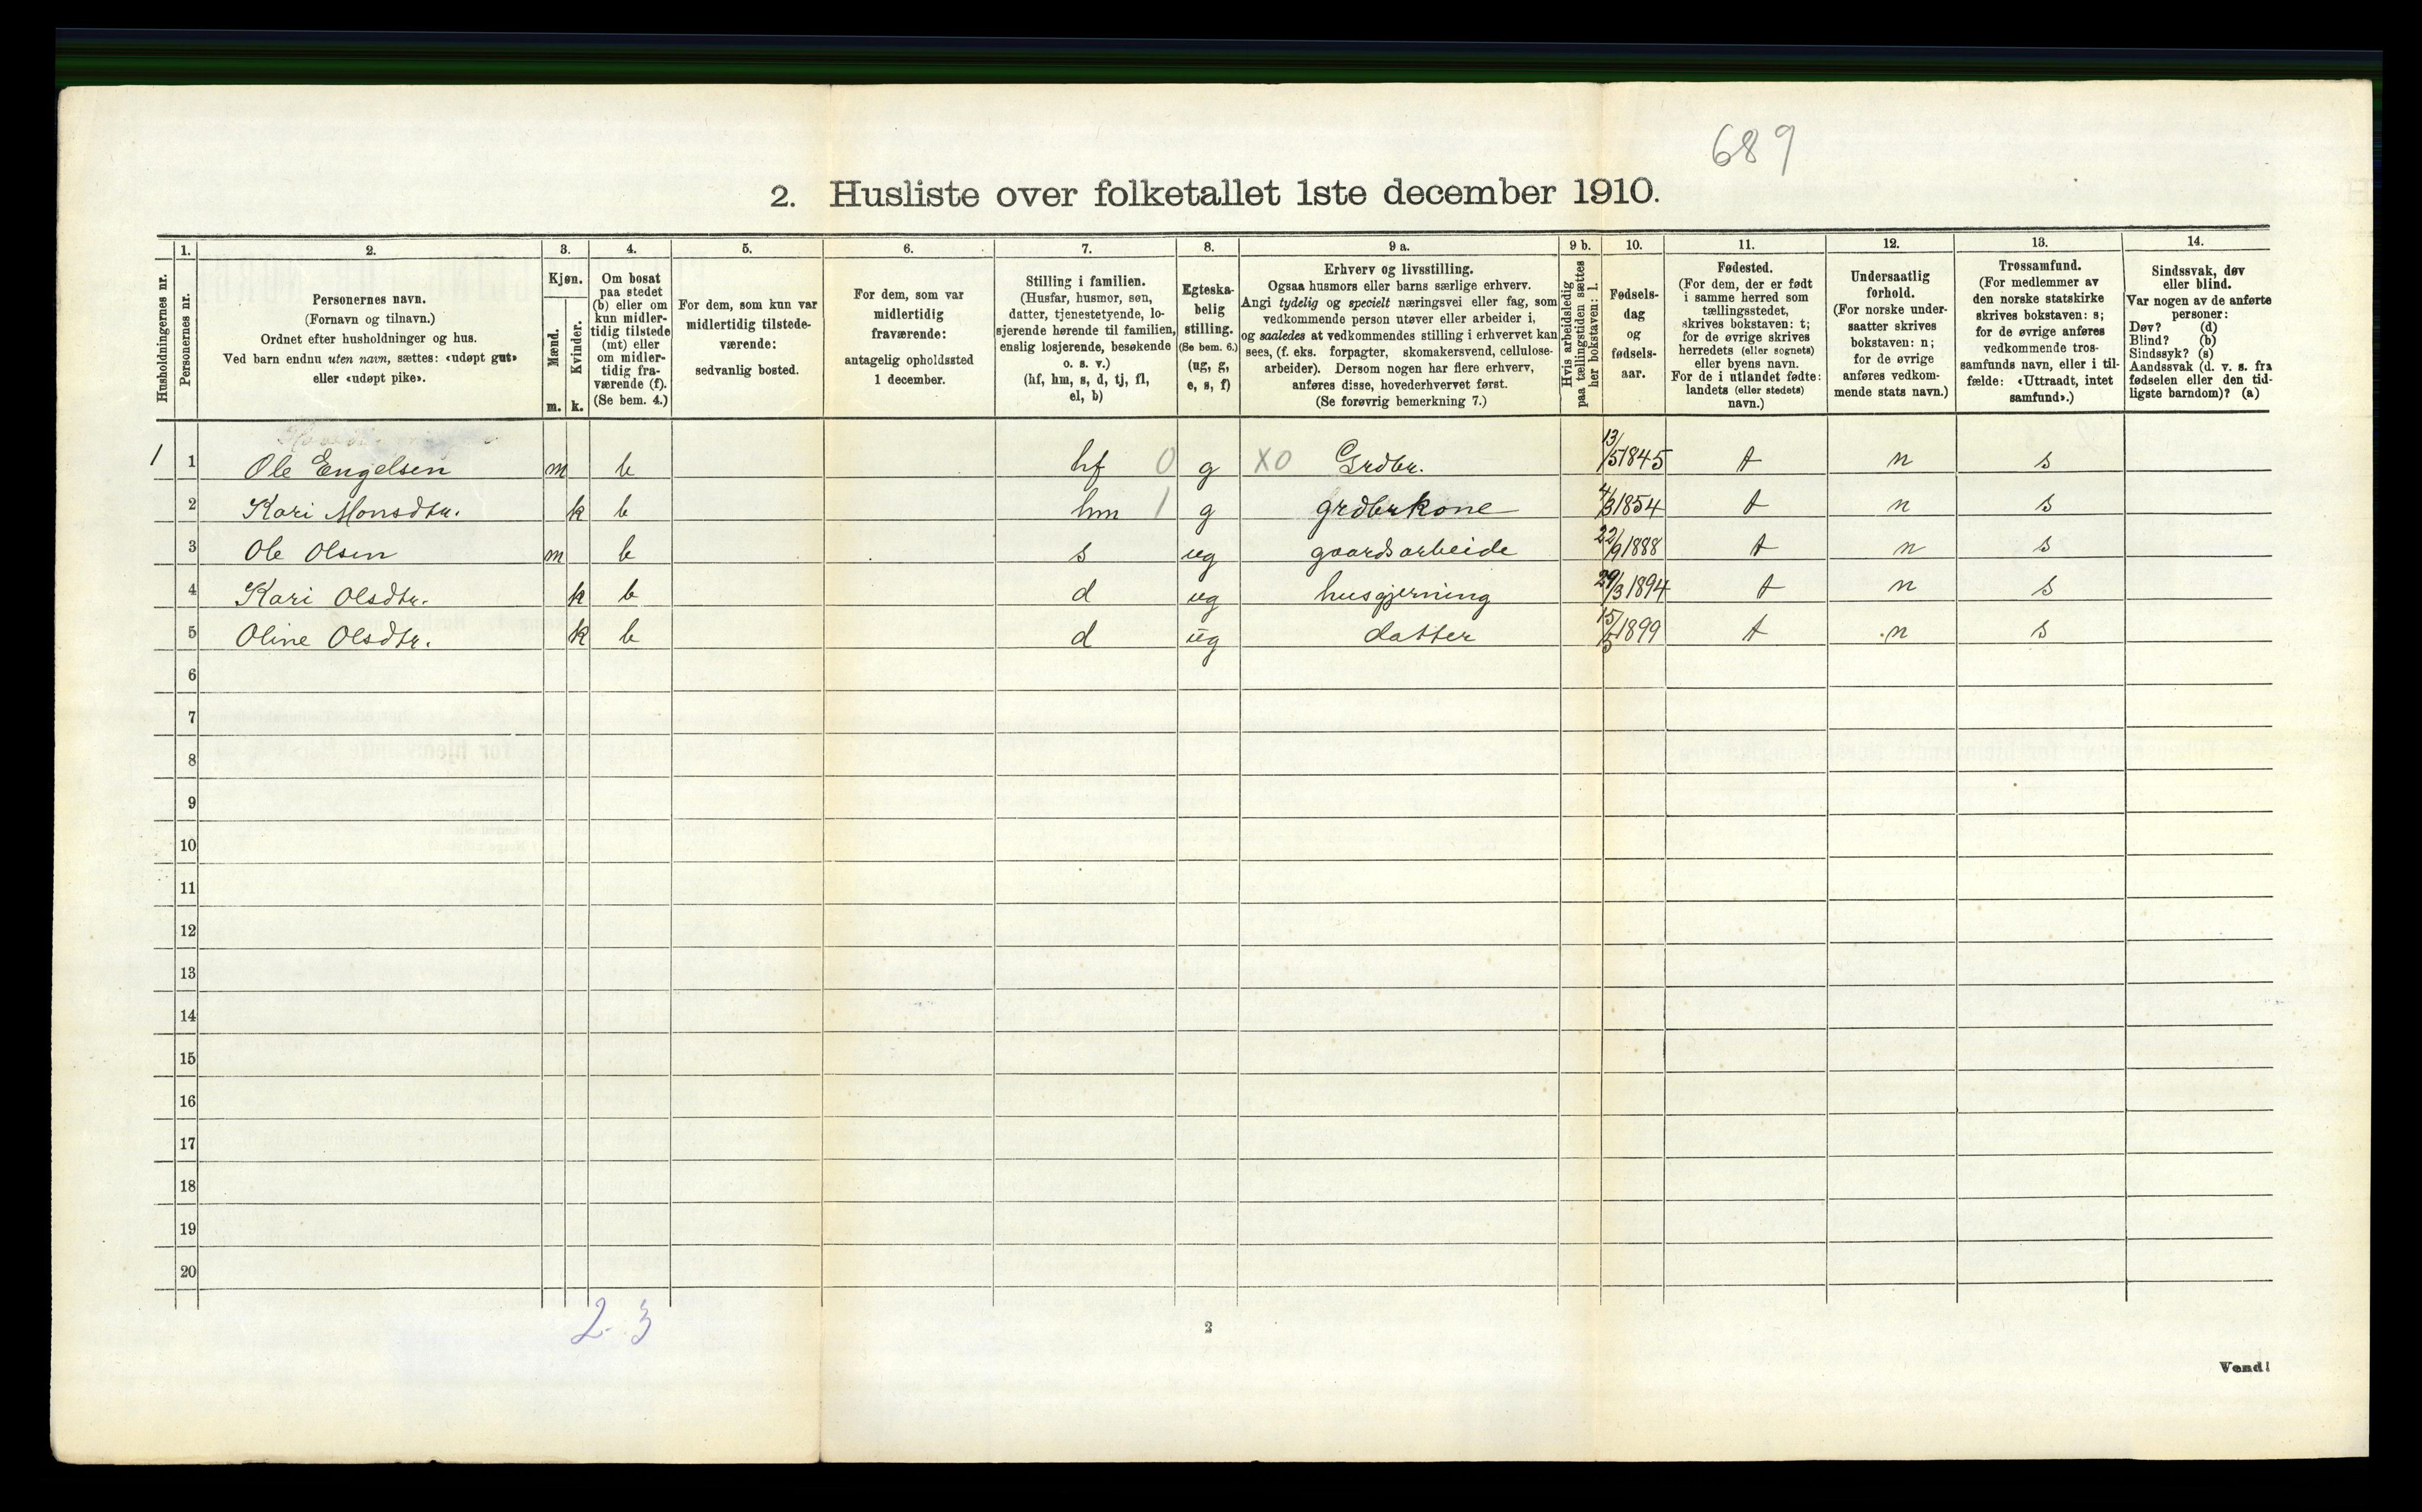 689
2. Husliste over folketallet 1ste december 1910.
Husholdningernes nr.
1.
Personernes nr.
2.
Personernes navn.
(Fornavn og tilnavn.)
Ordnet efter husholdninger og hus.
Ved barn endnu uten navn, sættes: «udøpt gut»
eller «udøpt pike».
3.
Kjøn.
Mænd.
Kvinder.
m. k.
4.
Om bosat
paa stedet
(b) eller om
kun midler-
tidig tilstede
(mt) eller
om midler-
tidig fra-
værende (f).
(Se bem. 4.)
5.
For dem, som kun var
midlertidig tilstede-
værende:
sedvanlig bosted.
6.
For dem, som var
midlertidig
fraværende:
antagelig opholdssted
1 december.
7.
Stilling i familien.
(Husfar, husmor, søn,
datter, tjenestetyende, lo-
sjerende hørende til familien,
enslig losjerende, besøkende
o. s. v.)
(hf, hm, s, d, tj, fl,
el, b)
8.
Egteska-
belig
stilling.
(Se bem. 6.)
(ug, g,
e, s, f)
9 a.
Erhverv og livsstilling.
Ogsaa husmors eller barns særlige erhverv.
Angi tydelig og specielt næringsvei eller fag, som
vedkommende person utøver eller arbeider i,
og saaledes at vedkommendes stilling i erhvervet kan
sees, (f. eks. forpagter, skomakersvend, cellulose-
arbeider). Dersom nogen har flere erhverv,
anføres disse, hovederhvervet først.
(Se forøvrig bemerkning 7.)
9 b.
Hvis arbeidsledig
paa tællingstiden sættes
her bokstaven: l.
10.
Fødsels-
dag
og
fødsels-
aar.
11.
Fødested.
(For dem, der er født
i samme herred som
tællingsstedet,
skrives bokstaven: t;
for de øvrige skrives
herredets (eller sognets)
eller byens navn.
For de i utlandet fødte:
landets (eller stedets)
navn.)
12.
Undersaatlig
forhold.
(For norske under-
saatter skrives
bokstaven: n;
for de øvrige
anføres vedkom-
mende stats navn.)
13.
Trossamfund.
(For medlemmer av
den norske statskirke
skrives bokstaven: s;
for de øvrige anføres
vedkommende tros-
samfunds navn, eller i til-
fælde: «Uttraadt, intet
samfund».)
14.
Sindssvak, døv
eller blind.
Var nogen av de anførte
personer:
Døv? (d)
Blind? (b)
Sindssyk? (s)
Aandssvak (d. v. s. fra
fødselen eller den tid-
ligste barndom)? (a)
1 1 Ole Engelsen m b hf 0 g X0 Grdbr. 13/5 1845 t n s
2 Kari Monsdtr. k b hm 1 g grdbrkone 4/3 1854 t n s
3 Ole Olsen m b s ug gaardsarbeide 22/9 1888 t n s
4 Kari Olsdtr. k b d ug husgjerning 29/3 1894 t n s
5 Oline Olsdtr. k b d ug datter 15/5 1899 t n s
6
7
8
9
10
11
12
13
14
15
16
17
18
19
20
2 3
2
Vend!